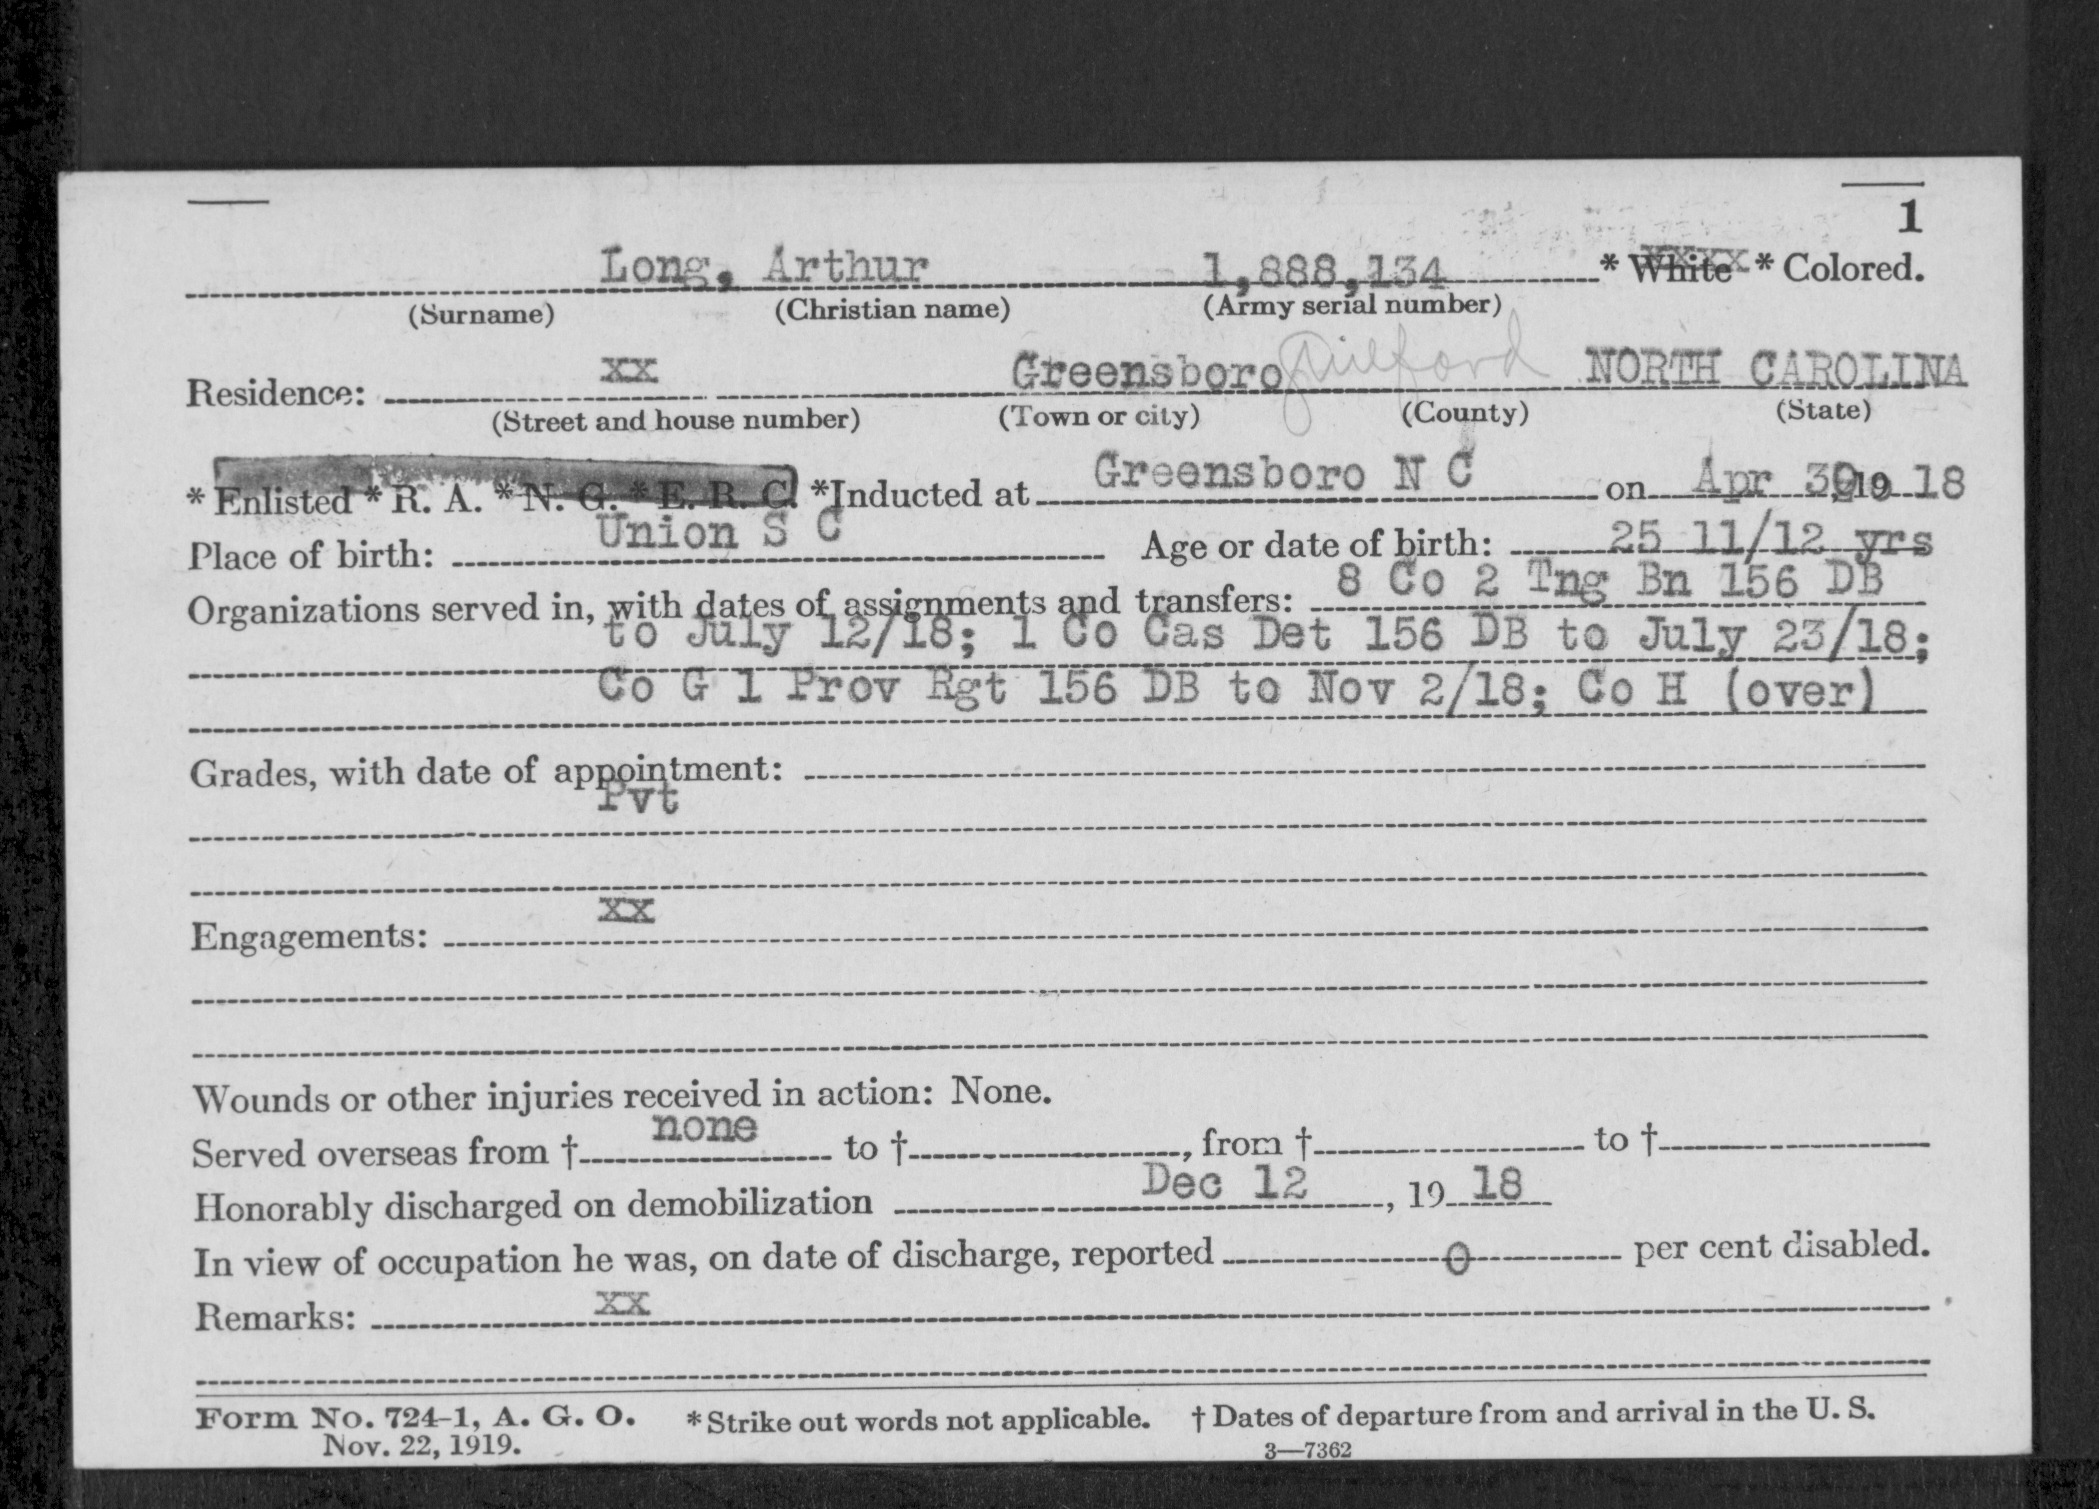 1
Long, Arthur 1,888,134 * White * Colored.
(Surname) (Christian name) (Army serial number)
Residence: xx Greensboro Guilford NORTH CAROLINA
(Street and house number) (Town or city) (County) (State)
* Enlisted * R. A. * N. G. * E. R. C. *Inducted at Greensboro N C on Apr 30, 19 18
Place of birth: Union S C Age or date of birth: 25 11/12 yrs
Organizations served in, with dates of assignments and transfers: 8 Co 2 Tng Bn 156 DB
to July 12/18; 1 Co Cas Det 156 DB to July 23/18;
Co G 1 Prov Rgt 156 DB to Nov 2/18; Co H (over)
Grades, with date of appointment:
Pvt
Engagements: xx
Wounds or other injuries received in action: None.
Served overseas from † none to †, from † to †
Honorably discharged on demobilization Dec 12, 19 18
In view of occupation he was, on date of discharge, reported 0 per cent disabled.
Remarks: xx
Form No. 724-1, A. G. O. * Strike out words not applicable. † Dates of departure from and arrival in the U. S.
Nov. 22, 1919. 3—7362